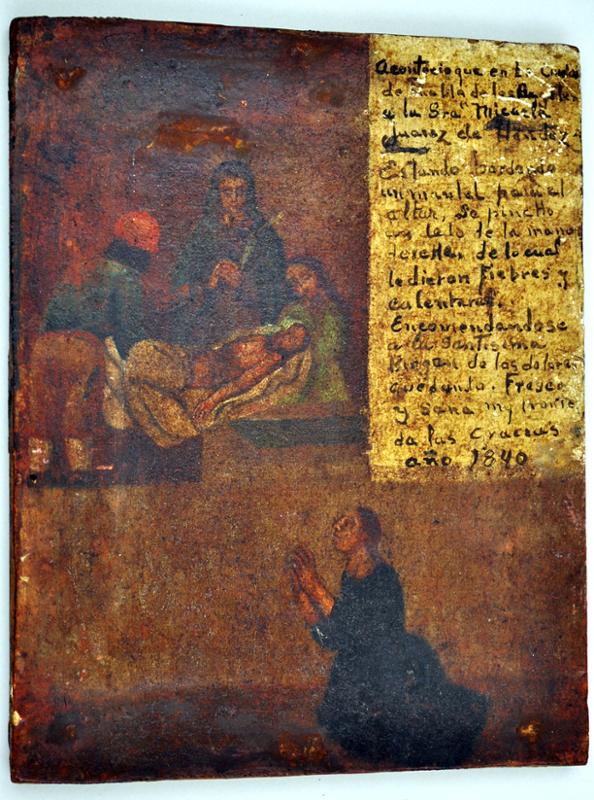 Acontecio que en la Ciudad
de Puebla de los Angeles
a la Sra Micaela
Juarez de
Estando bordando
un mantel para el
altar, se pincho
un dedo de la mano
derecha, de lo cual
le dieron Fiebres y
calenturas.
Encomendandose
a la Santisima
Birgen de los dolores
quedando. Fresca
y sana my
da las Gracias
año 1840